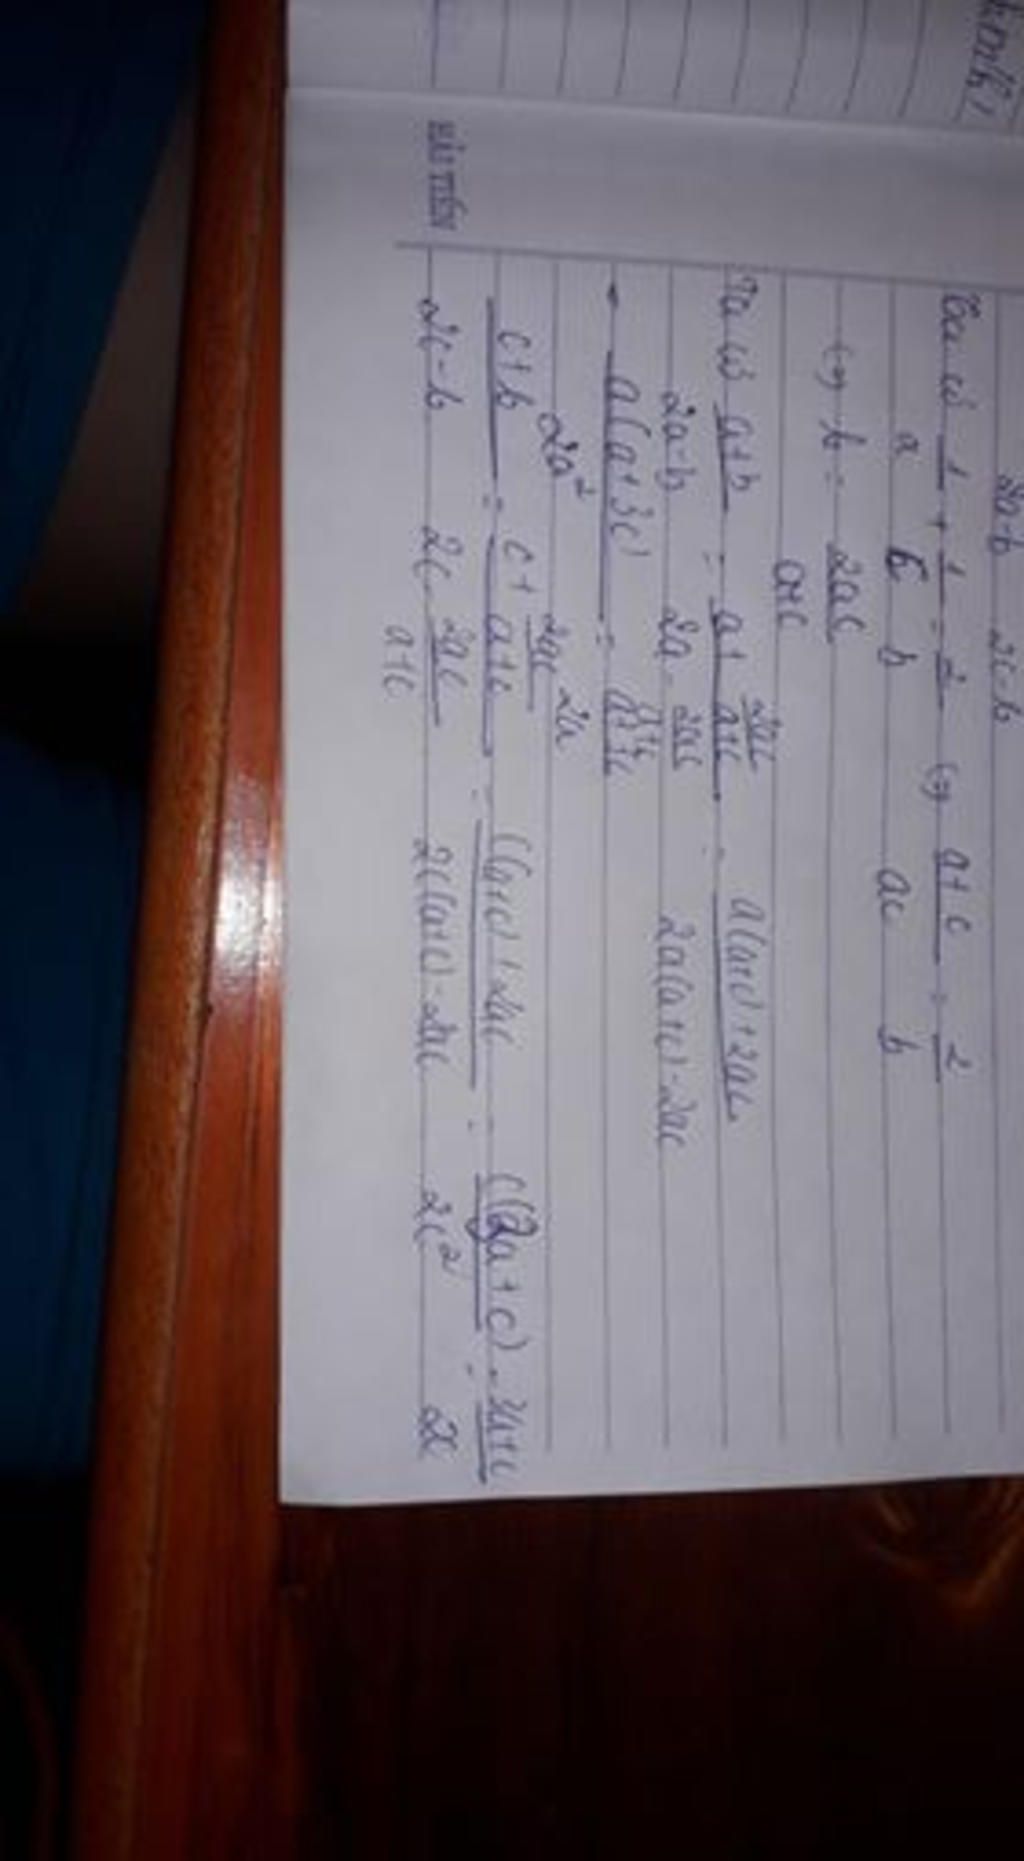 2a-b 2c-b
Ta có 1/a + 1/b = 2/b (=) a+c/ac = 2/b
(=) b = 2ac/a+c
Ta có a+b/2a-b = a+ 2ac/a+c / 2a- 2ac/a+c = a(a+c)+2ac / 2a(a+c)-2ac
= a(a+3c) / 2a² = a+3c / 2a
c+b/2c-b = c+ 2ac/a+c / 2c- 2ac/a+c = c(a+c)+2ac / 2c(a+c)-2ac = c(3a+c) / 2c² = 3a+c / 2c
HẢI TIẾN